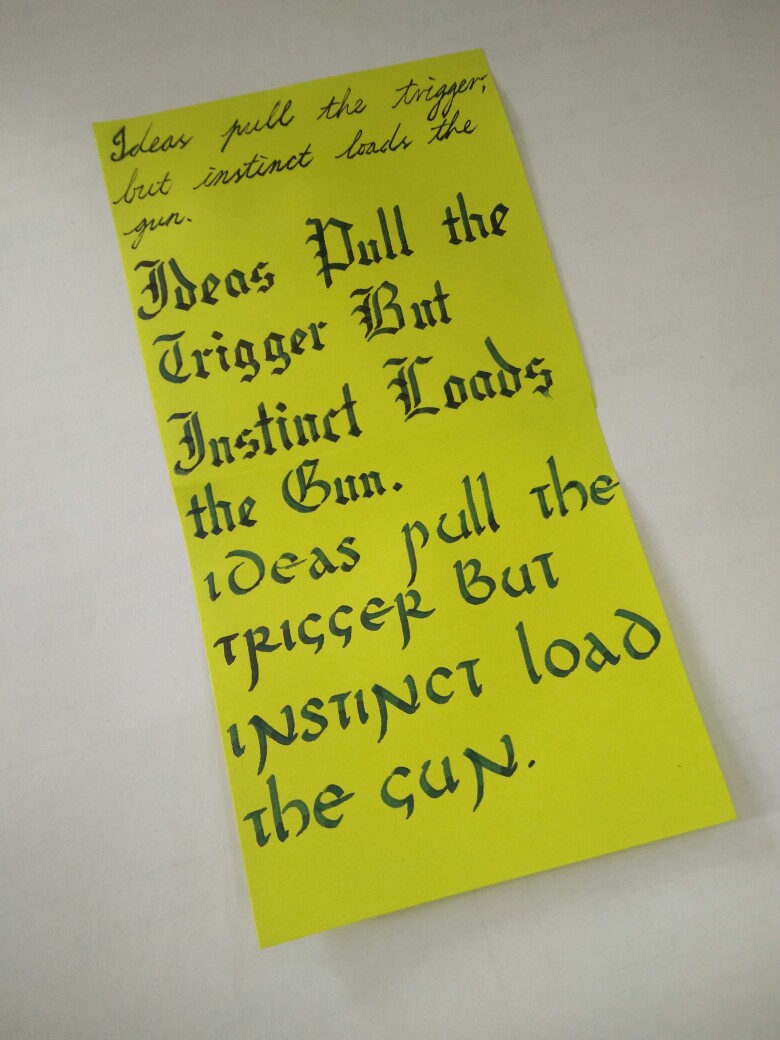 Ideas pull the trigger,
but instinct loads the
gun.
Ideas Pull the
Trigger But
Instinct Loads
the Gun.
ideas pull the
TRIGGER BUT
INSTINCT load
the GUN.